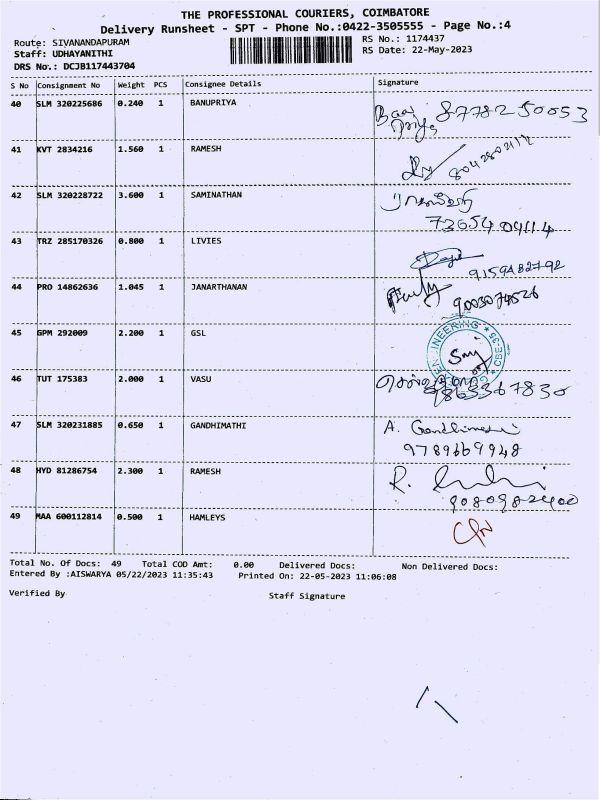 THE PROFESSIONAL COURIERS, COIMBATORE
Delivery Runsheet - SPT - Phone No.:0422-3505555 - Page No.:4
Route: SIVANANDAPURAM RS No.: 1174437
Staff: UDHAYANITHI RS Date: 22-May-2023
DRS No.: DCJB117443704
S No Consignment No Weight PCS Consignee Details Signature
40 SLM 320225686 0.240 1 BANUPRIYA 8778250053
41 KVT 2834216 1.560 1 RAMESH
42 SLM 320228722 3.600 1 SAMINATHAN
736540414
43 TRZ 285170326 0.800 1 LIVIES
9159482792
44 PRO 14862636 1.045 1 JANARTHANAN
9003074526
45 GPM 292009 2.200 1 GSL
46 TUT 175383 2.000 1 VASU
47 SLM 320231885 0.650 1 GANDHIMATHI A. Gandhimathi
9789669948
48 HYD 81286754 2.300 1 RAMESH R.
9080982400
49 MAA 600112814 0.500 1 HAMLEYS
Total No. Of Docs: 49 Total COD Amt: 0.00 Delivered Docs: Non Delivered Docs:
Entered By :AISWARYA 05/22/2023 11:35:43 Printed On: 22-05-2023 11:06:08
Verified By Staff Signature